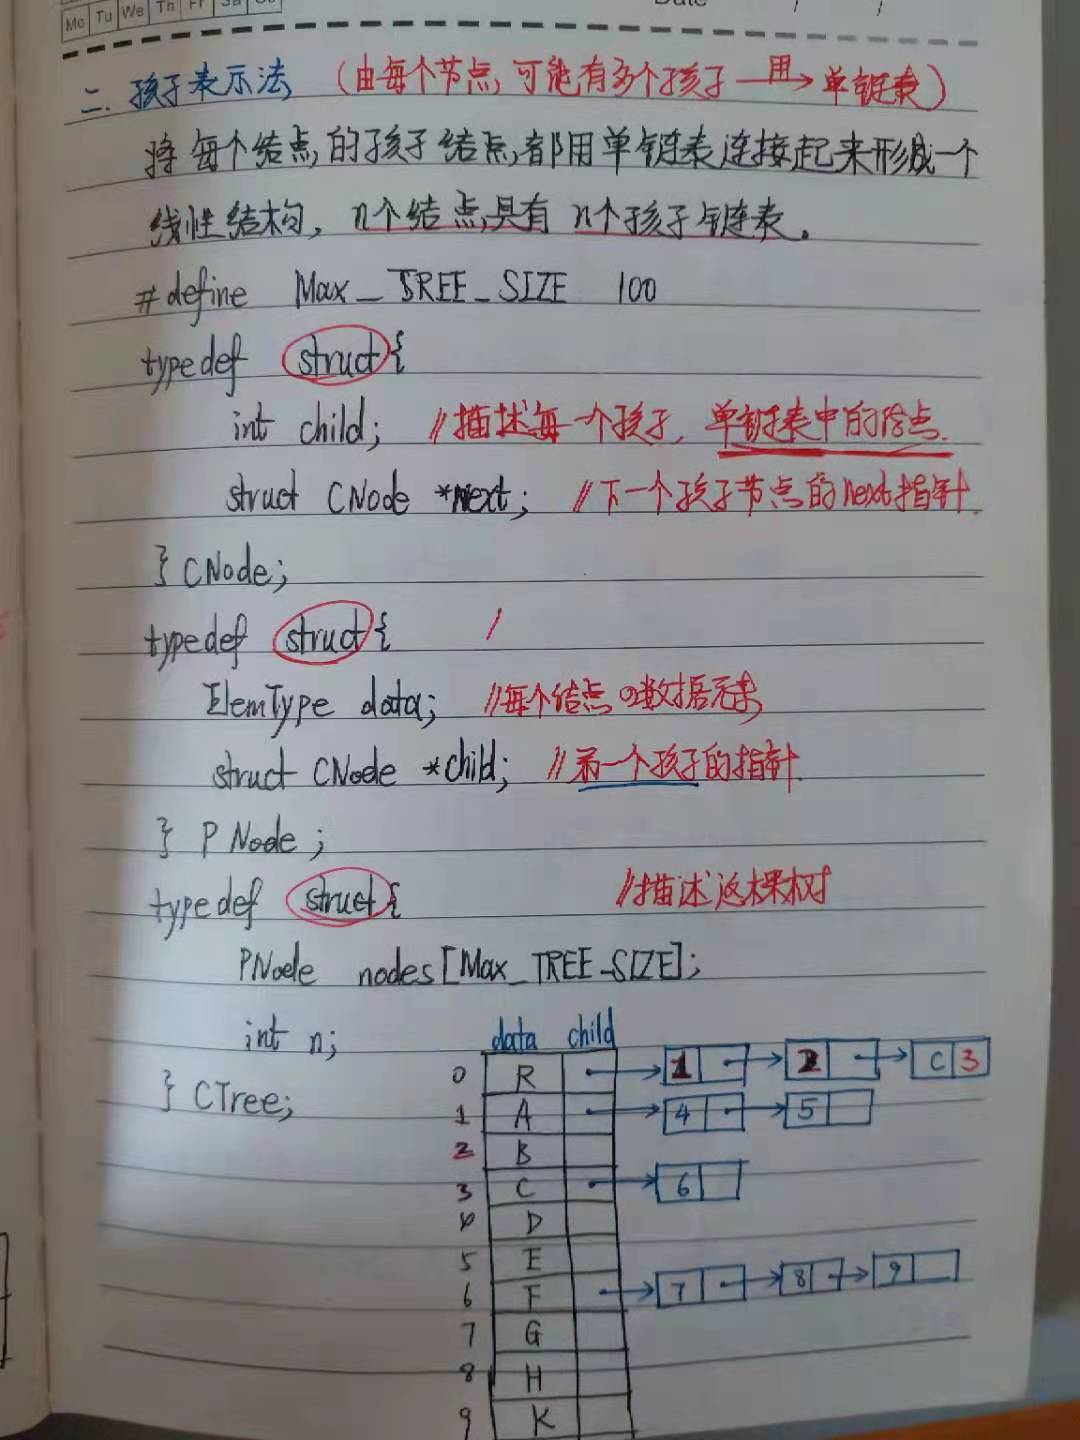 Mo Tu We Th Fr Sa Su
Date / /
二. 孩子表示法 (由每个节点,可能有多个孩子 —用→ 单链表)
将每个结点的孩子结点都用单链表连接起来形成一个
线性结构, n个结点具有 n个孩子链表。
#define Max_TREE_SIZE 100
typedef struct{
int child; //描述每一个孩子, 单链表中的结点.
struct CNode *next; //下一个孩子节点的next指针.
} CNode;
typedef struct{
ElemType data; //每个结点的数据元素
struct CNode *child; //第一个孩子的指针.
} PNode;
typedef struct{ //描述这棵树
PNode nodes[Max_TREE_SIZE];
int n;
} CTree;
data child
0 R 1 2 C 3
1 A 4 5
2 B
3 C 6
4 D
5 E
6 F 7 8 9
7 G
8 H
9 K